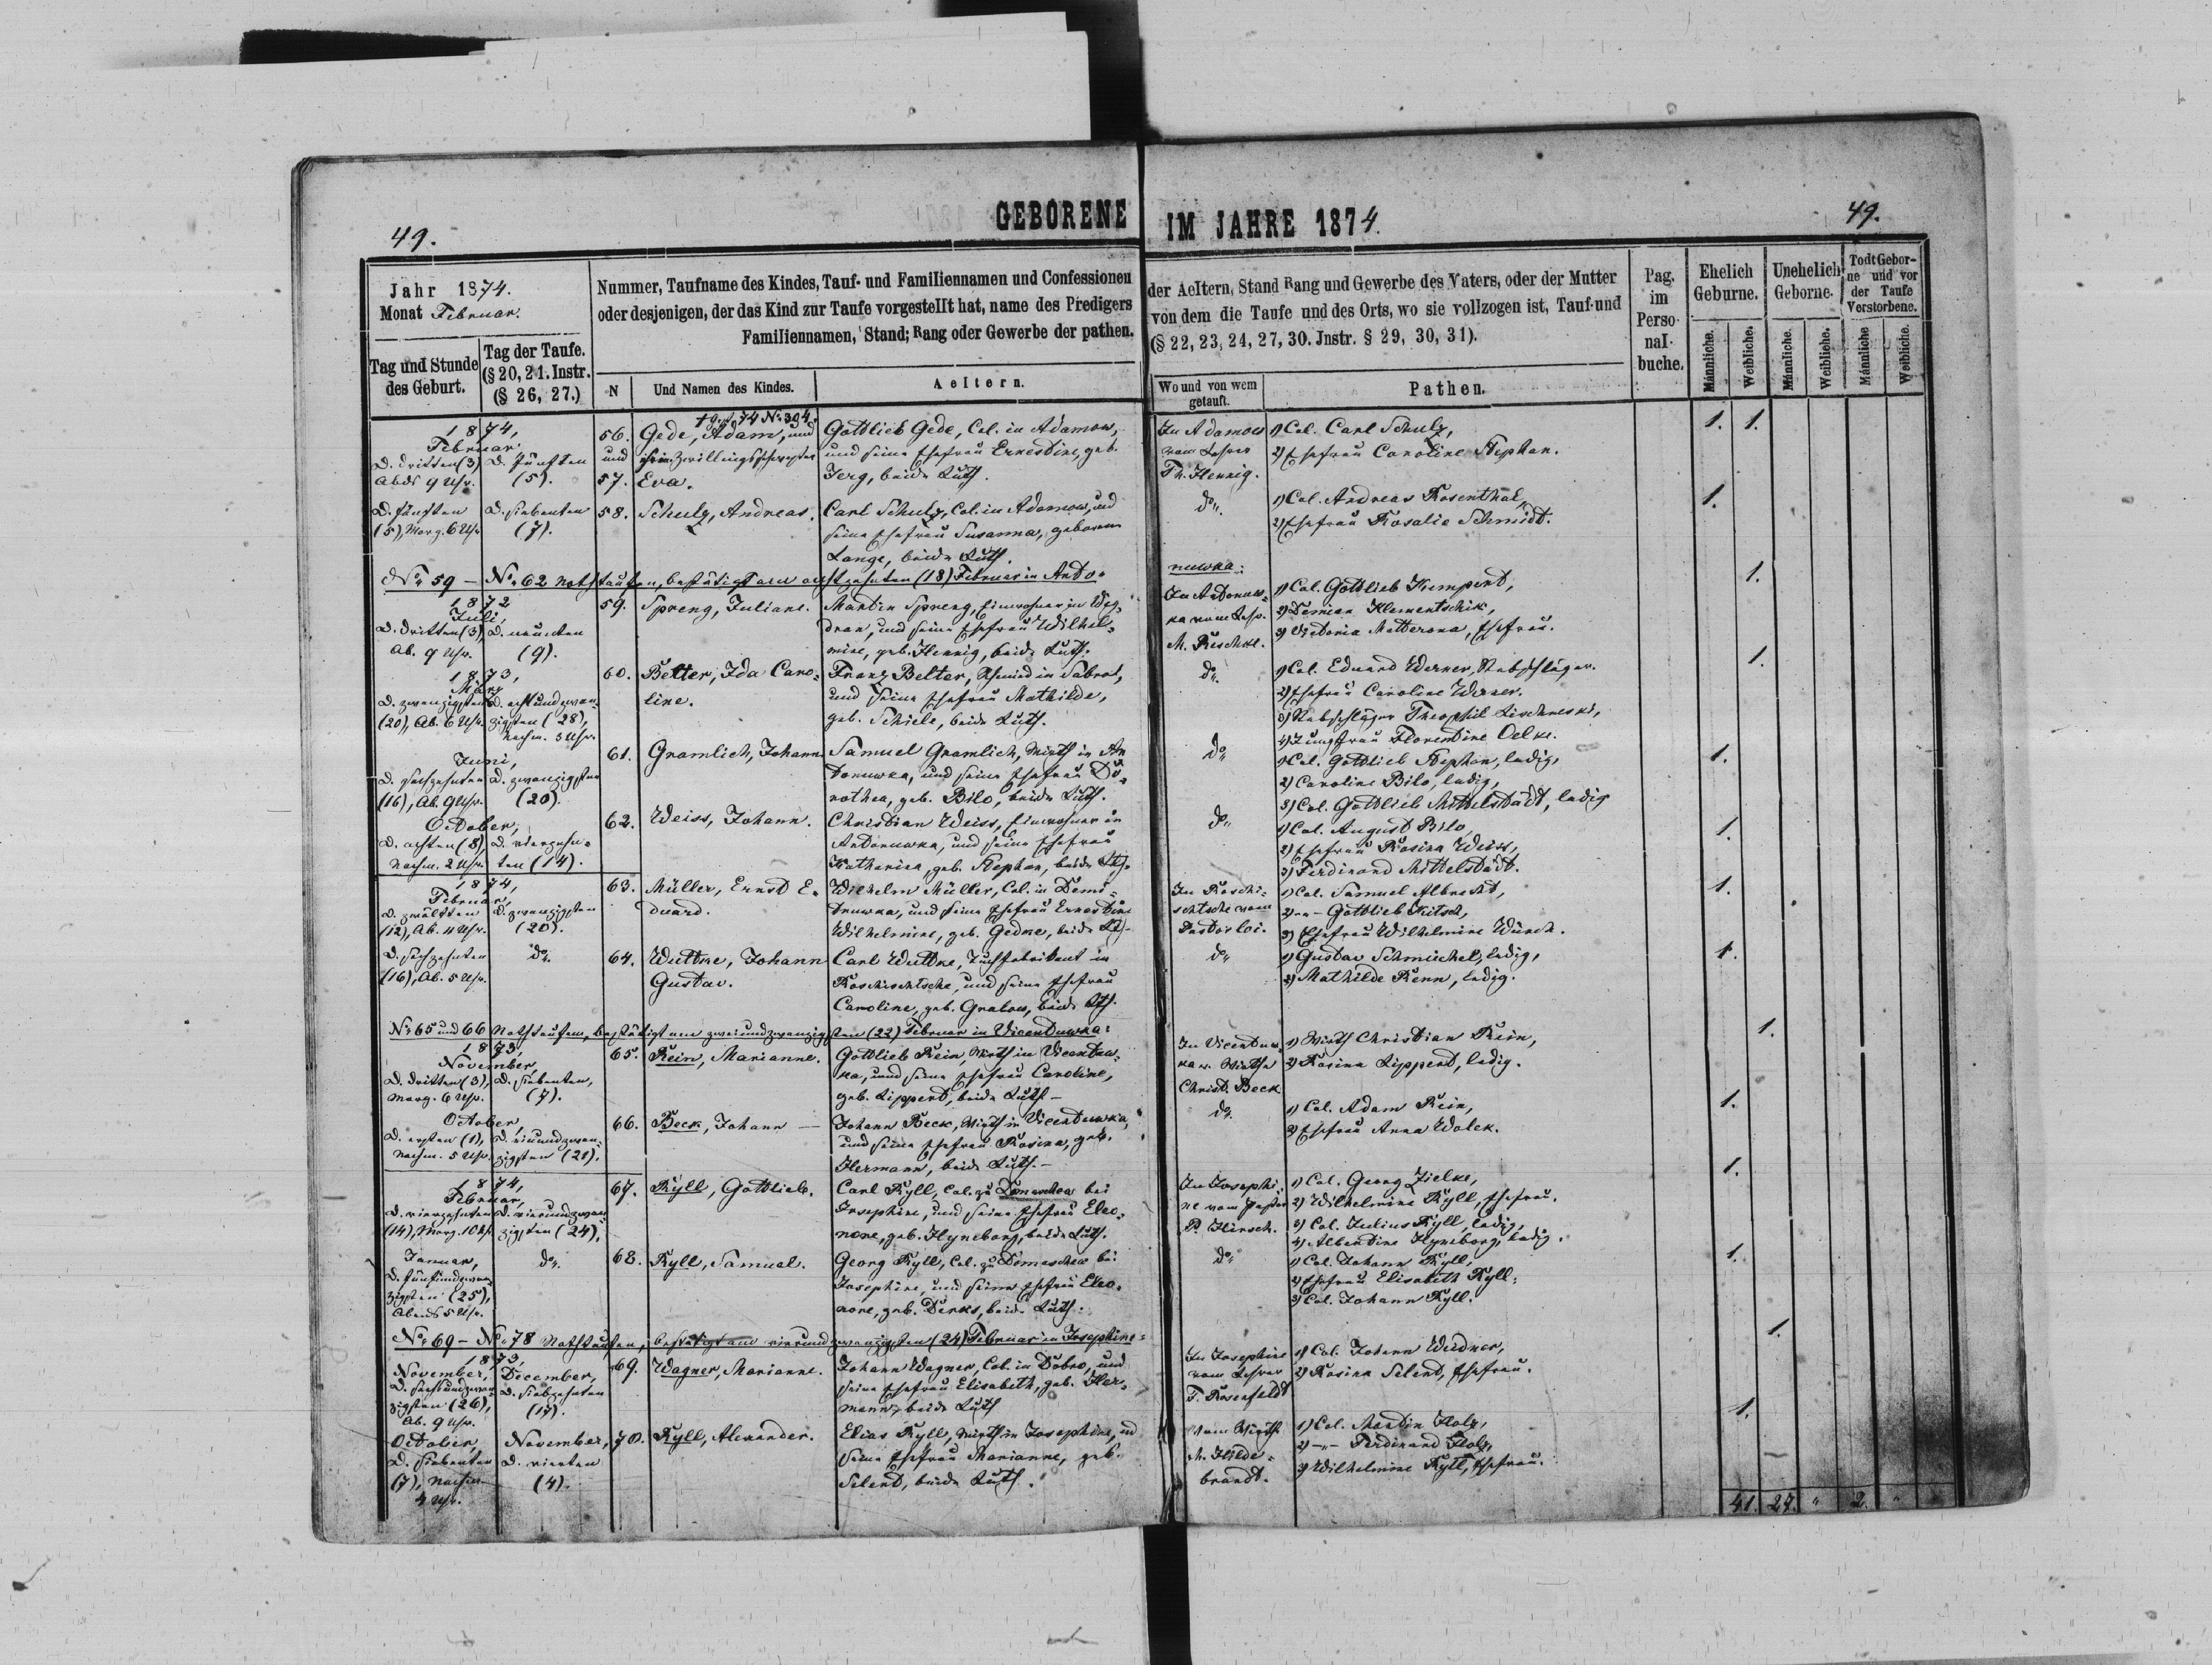 GEBORENE IM JAHRE 1874.
49.
49.
Jahr 1874.
Monat Februar.
Tag und Stunde des Geburt.
Tag der Taufe. (§ 20, 21. Instr. (§ 26, 27.)
Nummer, Taufname des Kindes, Tauf- und Familiennamen und Confessionen
oder desjenigen, der das Kind zur Taufe vorgestellt hat, name des Predigers
Familiennamen, Stand; Rang oder Gewerbe der pathen.
N
Und Namen des Kindes.
Aeltern.
der Aeltern, Stand Rang und Gewerbe des Vaters, oder der Mutter
von dem die Taufe und des Orts, wo sie vollzogen ist, Tauf-und
(§ 22, 23, 24, 27, 30. Jnstr. § 29, 30, 31).
Wo und von wem getauft.
Pathen.
Pag. im Perso-nal-buche.
Ehelich Geburne.
Unehelich Geborne.
Todt Gebor-ne und vor der Taufe Verstorbene.
Männliche. Weibliche. Männliche. Weibliche. Männliche Weibliche.
1874,
Februar
D. dritten (3) Abds 9 Uhr.
D. fünften (5).
56. und 57.
Gede, Adam, und
ihre Zwillingsschwester
Eva.
Gottlieb Gede, Col. in Adamow,
und seine Ehefrau Ernestine, geb.
Jerg, beide Luth.
In Adamow
vom Lehrer
Th. Hennig.
1) Col. Carl Schulz,
2) Ehefrau Caroline Stephan.
1. 1.
D. fünften (5), Morg. 6 Uhr
D. siebenten (7).
58. Schulz, Andreas.
Carl Schulz, Col. in Adamow, und
seine Ehefrau Susanna, geborene
Lange, beide Luth.
do.
1) Col. Andreas Rosenthal,
2) Ehefrau Rosalie Schmidt.
1.
No 59 - No 62 Nothtaufen, bestätigt am achtzehnten (18) Februar in Anto-
nuwka:
1872
Juli,
D. dritten (3) Ab. 9 Uhr.
D. neunten (9).
59. Spreng, Juliane.
Martin Spreng, Einwohner in
und seine Ehefrau Wilhel-
mine, geb. Hennig, beide Luth.
In Antonuw-
ka vom Lehr.
M. Reschke.
1) Col. Gottlieb Kempert,
2) Damian Klementschik,
3) Victoria Matterona, Ehefrau.
1.
1873,
März
D. zwanzigsten (20), Ab. 6 Uhr.
D. achtundzwan-zigsten (28), Nachm. 3 Uhr.
60. Belter, Ida Caro-
line.
Franz Belter, Schmied in Sabrat,
und seine Ehefrau Mathilde,
geb. Schiele, beide Luth.
do.
1) Col. Eduard Werner, Stabschläger.
2) Ehefrau Caroline Werner.
3) Stabschläger Theophil Lischneski,
4) Jungfrau Florentine Oelke.
1.
Juni,
D. sechzehnten (16), Ab. 9 Uhr.
D. zwanzigsten (20).
61. Gramlich, Johann
Samuel Gramlich, Wirth in An
tonuwka, und seine Ehefrau Do-
rothea, geb. Bilo, beide Luth.
do
1) Col. Gottlieb Stephan, ledig,
2) Caroline Bilo, ledig,
3) Col. Gottlieb Mittelstädt, ledig
1.
October,
D. achten (8), Nachm. 2 Uhr.
D. vierzehn-ten (14).
62. Weiss, Johann.
Christian Weiss, Einwohner in
Antonuwka, und seine Ehefrau
Katharina, geb. Stephan, beide Lth.
do
1) Col. August Bilo,
2) Ehefrau Rosina Weiss,
3) Ferdinand Mittelstädt.
1.
1874,
Februar,
D. zwölften (12), Ab. 11 Uhr.
D. zwanzigsten (20).
63. Müller, Ernst E-
duard.
Wilhelm Müller, Col. in Demi-
truwka, und seine Ehefrau Ernestine
Wilhelmine, geb. Gedne, beide Lth.
In Roschi-
schtsche vom
Pastor loci.
1) Col. Samuel Albrecht,
2) -"- Gottlieb Kitsch,
3) Ehefrau Wilhelmine Würch.
1.
D. sechzehnten (16), Ab. 5 Uhr.
do.
64. Wuttke, Johann
Gustav.
Carl Wuttke, Tuchfabrikant in
Roschischtsche, und seine Ehefrau
Caroline, geb. Gralow, beide Lth.
do
1) Gustav Schmichel, ledig,
2) Mathilde Renn, ledig.
1.
No 65 und 66 Nothtaufen, bestätigt am zweiundzwanzigsten (22) Februar in Vicentuwka:
1873,
November,
D. dritten (3), Morg. 6 Uhr.
D. siebenten, (7).
65. Rein, Marianne.
Gottlieb Rein, Wirth in Vicentuw-
ka, und seine Ehefrau Caroline,
geb. Lippert, beide Luth -
In Vicentuw-
ka v. Wirthe
Christ. Beck
1) Wirth Christian Rein,
2) Rosina Lippert, ledig.
1.
October,
D. ersten (1), Nachm. 5 Uhr.
D. einundzwan-zigsten (21).
66. Beck, Johann -
Johann Beck, Wirth in Vicentuwka,
und seine Ehefrau Rosina, geb.
Hermann, beide Luth. -
do.
1) Col. Adam Rein,
2) Ehefrau Anna Walek.
1.
1874,
Februar,
D. vierzehnten (14), Morg. 10 Uhr.
D. vierundzwan-zigsten (24).
67. Ryll, Gottlieb.
Carl Ryll, Col. zu Domaschew bei
Josephine, und seine Ehefrau Eleo-
nore, geb. Hyneborg, beide Luth.
In Josephi-
ne vom Pastor
P. Hirsch.
1) Col. Georg Zielke,
2) Wilhelmine Ryll, Ehefrau.
3) Col. Julius Ryll, ledig,
4) Albertine Hyneborg, ledig.
1.
Januar,
D. fünfundzwan-zigsten (25), Abends 5 Uhr.
do.
68. Ryll, Samuel.
Georg Ryll, Col. zu Domaschew bei
Josephine, und seine Ehefrau Eleo-
nore, geb. Derks, beide Luth:
do
1) Col. Johann Ryll,
2) Ehefrau Elisabeth Ryll,
3) Col. Johann Ryll.
1.
No 69 - No 78 Nothtaufen, bestätigt am vierundzwanzigsten (24) Februar in Josephine:
1873,
November, D. sechsundzwan-zigsten (26), Ab. 9 Uhr.
December, D. siebzehnten (17).
69. Wagner, Marianne.
Johann Wagner, Col. in Dobro, und
seine Ehefrau Elisabeth, geb. Her-
mann, beide Luth
In Josephine
vom Lehrer
F. Rosenfeldt
1) Col. Johann Weidner,
2) Rosina Selent, Ehefrau.
1.
October, D. siebenten (7), Nachm 4 Uhr.
November, D. vierten (4).
70. Ryll, Alexander.
Elias Ryll, Wirth in Josephine, und
seine Ehefrau Marianne, geb.
Selent, beide Luth.
Vom Wirth
M. Hilde-
brandt.
1) Col. Martin Holz,
2) -"- Ferdinand Holz,
3) Wilhelmine Ryll, Ehefrau.
1.
41. 27. " 2. "